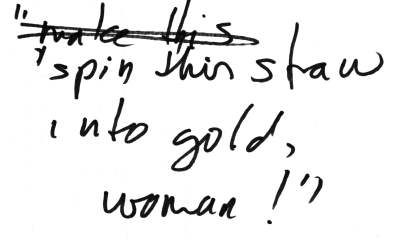 "make this
spin this straw
into gold,
woman!"